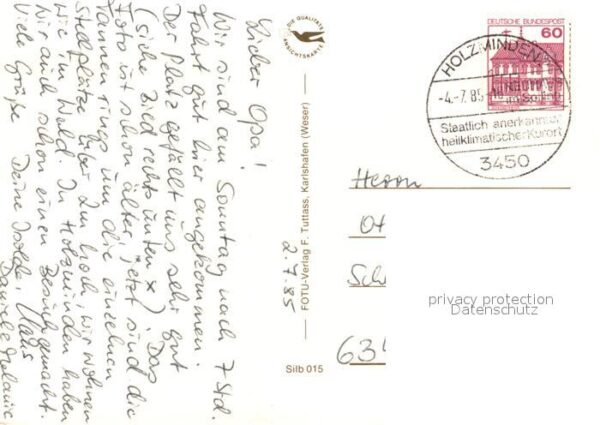 Lieber Opa!
Wir sind am Sonntag nach 7 Std.
Fahrt gut hier angekommen.
Der Platz gefällt uns sehr gut
(siehe Bild rechts unten x). Das
Foto ist schon älter, jetzt sind die
Tannen rings um die einzelnen
Stellplätze über 2m hoch, wir wohnen
wie im Wald. In Holzminden haben
wir auch schon einen Besuch gemacht.
Viele Grüße Deine Isolde, Klaus
Melanie
2.7.85
DIE QUALITÄTS
ANSICHTSKARTE
FOTU-Verlag F. Tuttlass, Karlshafen (Weser)
Silb 015
DEUTSCHE BUNDESPOST
60
HOLZMINDEN
-4.-7.85-18
Staatlich anerkannter
heilklimatischer Kurort
3450
Herrn
privacy protection
Datenschutz